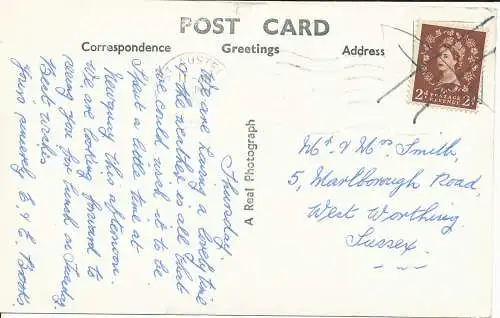 POST CARD
Correspondence Greetings Address
Thursday.
We are having a lovely time
& the weather is all that
we could wish it to be
Spent a little time at
Newquay this afternoon.
We are looking forward to
seeing you for lunch on Tuesday
Best wishes
Yours sincerely E & C. Books.
A Real Photograph
2D POSTAGE REVENUE 2D
Mr. & Mrs. Smith,
5, Marlborough Road,
West Worthing.
Sussex.